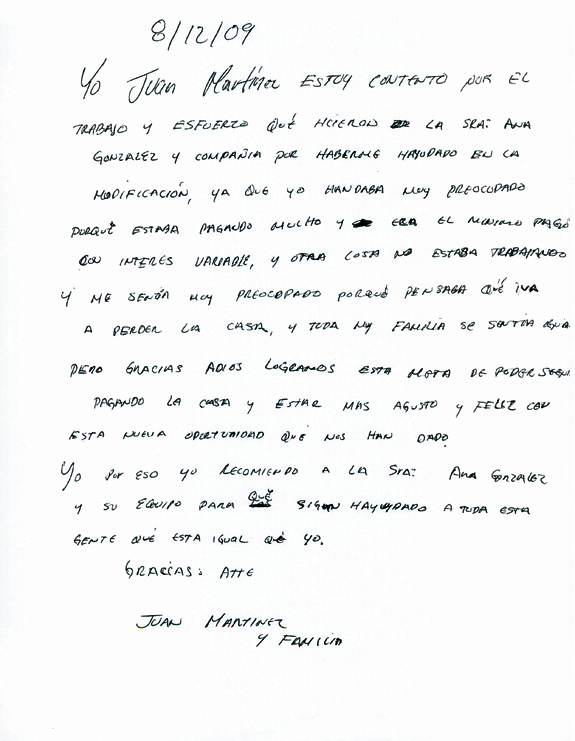 8/12/09
Yo Juan Martínez ESTOY CONTENTO POR EL
TRABAJO Y ESFUERZO QUÉ HCIERON LA SRA: ANA
GONZALEZ Y COMPAÑIA POR HABERME HAYUDADO EN LA
MODIFICACIÓN, YA QUE YO HANDABA MUY PREOCOPADO
PORQUÉ ESTABA PAGANDO MUCHO Y ERA EL MINIMO PAGO
CON INTERES VARIABLE, Y OTRA COSA NO ESTABA TRABAJANDO
Y ME SENTÍA MUY PREOCOPADO PORQUÉ PENSABA QUÉ IVA
A PERDER LA CASA, Y TODA MY FAMILIA SE SENTIA IGUA
PERO GRACIAS ADIOS LOGRAMOS ESTA META DE PODER SEGUI
PAGANDO LA CASA Y ESTAR MAS AGUSTO Y FELIZ CON
ESTA NUEVA OPORTUNIDAD QUE NOS HAN DADO.
Yo POR ESO YO RECOMIENDO A LA Sra: ANA GONZALEZ
Y SU EQUIPO PARA QUÉ SIGAN HAYUDADO A TODA ESTA
GENTE QUÉ ESTA IGUAL QUÉ YO.
GRACIAS: ATTE
JUAN MARTINEZ
Y FAMILIA